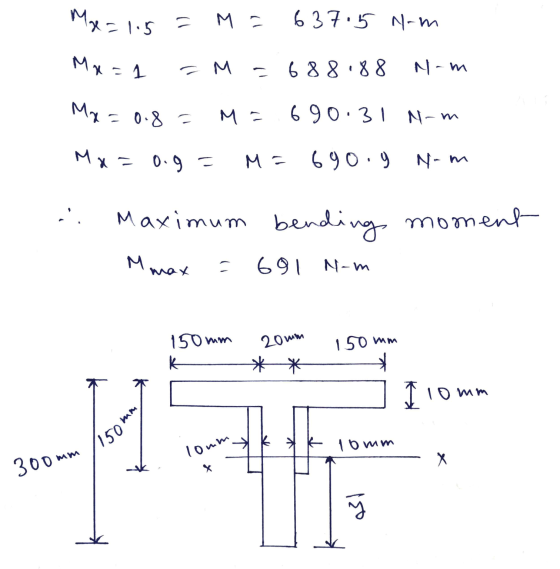 Mx=1.5 = M = 637.5 N-m
Mx=1 = M = 688.88 N-m
Mx=0.8 = M = 690.31 N-m
Mx=0.9 = M = 690.9 N-m
∴ Maximum bending moment
Mmax = 691 N-m
150mm 20mm 150 mm
10 mm
150mm
300mm
10mm 10mm
x x
ȳ